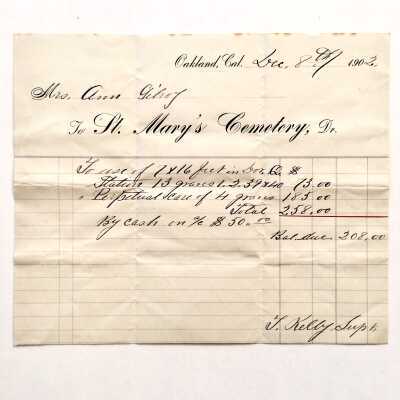 Oakland, Cal. Dec. 8th 1902
Mrs. Ann Gilroy
To St. Mary's Cemetery, Dr.
To use of 7 x 16 feet in
Station 13 graves 1. 2. 39 & 40 73.00
" Perpetual care of 4 graves 185.00
Total 258.00
By cash on % $50.00
Bal due 208.00
T. Kelly Supt